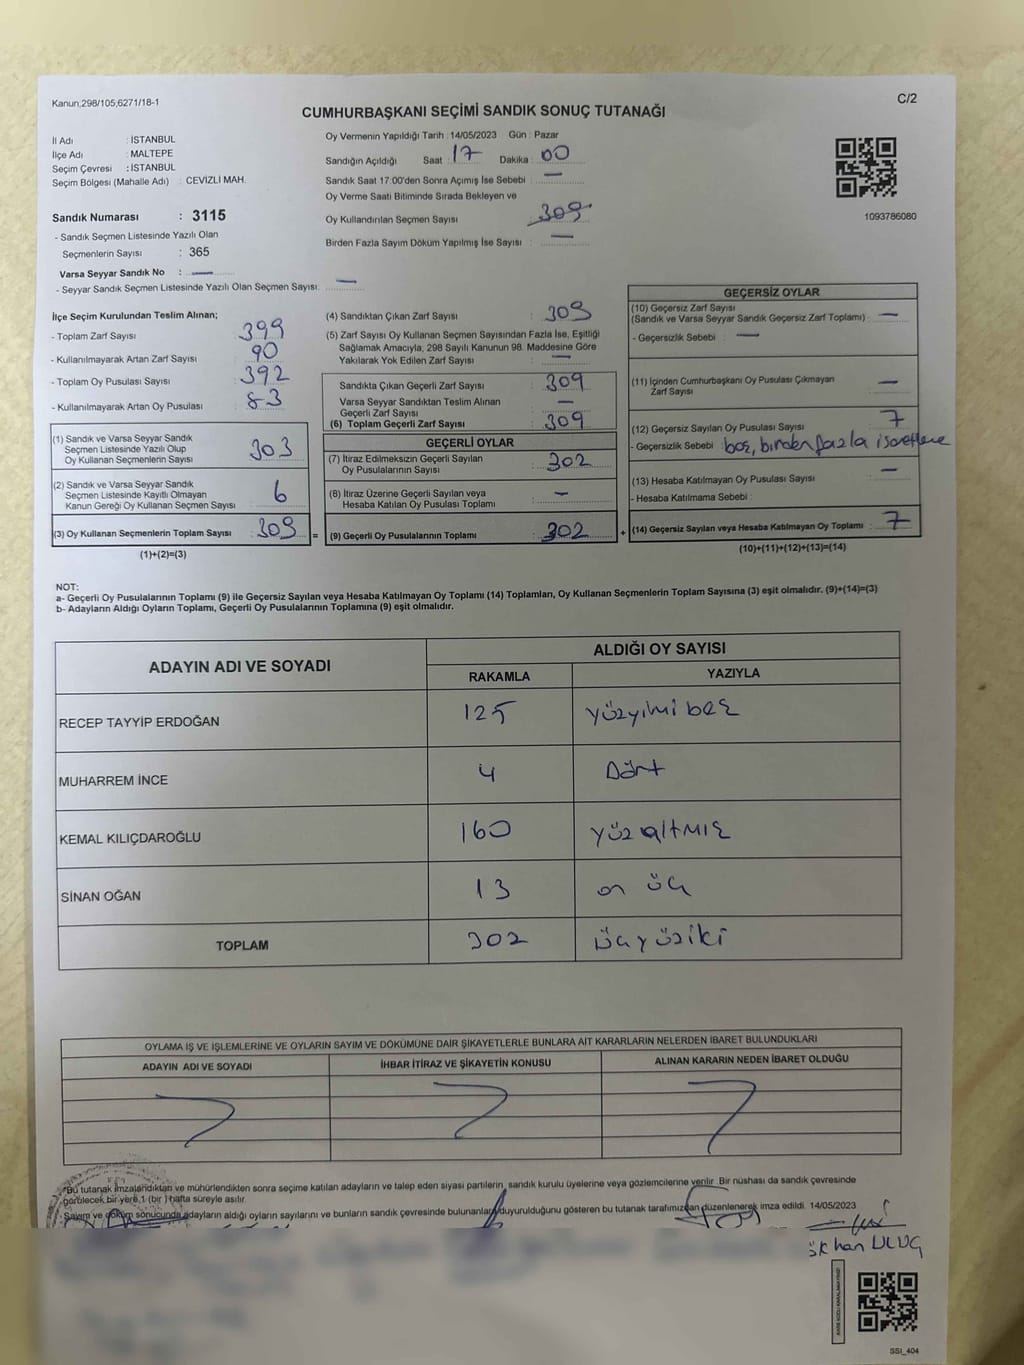 Kanun,298/105;6271/18-1
C/2
CUMHURBAŞKANI SEÇİMİ SANDIK SONUÇ TUTANAĞI
İl Adı : İSTANBUL
İlçe Adı : MALTEPE
Seçim Çevresi : İSTANBUL
Seçim Bölgesi (Mahalle Adı) : CEVİZLİ MAH.
Sandık Numarası : 3115
- Sandık Seçmen Listesinde Yazılı Olan
Seçmenlerin Sayısı : 365
Varsa Seyyar Sandık No : —
- Seyyar Sandık Seçmen Listesinde Yazılı Olan Seçmen Sayısı: —
Oy Vermenin Yapıldığı Tarih : 14/05/2023 Gün : Pazar
Sandığın Açıldığı Saat : 17 Dakika : 00
Sandık Saat 17:00'den Sonra Açımış İse Sebebi : —
Oy Verme Saati Bitiminde Sırada Bekleyen ve
Oy Kullandırılan Seçmen Sayısı : 309
Birden Fazla Sayım Döküm Yapılmış İse Sayısı : —
1093786080
İlçe Seçim Kurulundan Teslim Alınan;
- Toplam Zarf Sayısı : 399
- Kullanılmayarak Artan Zarf Sayısı : 90
- Toplam Oy Pusulası Sayısı : 392
- Kullanılmayarak Artan Oy Pusulası : 83
(1) Sandık ve Varsa Seyyar Sandık
Seçmen Listesinde Yazılı Olup
Oy Kullanan Seçmenlerin Sayısı : 303
(2) Sandık ve Varsa Seyyar Sandık
Seçmen Listesinde Kayıtlı Olmayan
Kanun Gereği Oy Kullanan Seçmen Sayısı : 6
(3) Oy Kullanan Seçmenlerin Toplam Sayısı : 309
(1)+(2)=(3)
(4) Sandıktan Çıkan Zarf Sayısı : 309
(5) Zarf Sayısı Oy Kullanan Seçmen Sayısından Fazla İse, Eşitliği
Sağlamak Amacıyla, 298 Sayılı Kanunun 98. Maddesine Göre
Yakılarak Yok Edilen Zarf Sayısı : —
Sandıkta Çıkan Geçerli Zarf Sayısı : 309
Varsa Seyyar Sandıktan Teslim Alınan
Geçerli Zarf Sayısı : —
(6) Toplam Geçerli Zarf Sayısı : 309
GEÇERLİ OYLAR
(7) İtiraz Edilmeksizin Geçerli Sayılan
Oy Pusulalarının Sayısı : 302
(8) İtiraz Üzerine Geçerli Sayılan veya
Hesaba Katılan Oy Pusulası Toplamı : —
= (9) Geçerli Oy Pusulalarının Toplamı : 302 +
GEÇERSİZ OYLAR
(10) Geçersiz Zarf Sayısı
(Sandık ve Varsa Seyyar Sandık Geçersiz Zarf Toplamı) : —
- Geçersizlik Sebebi : —
(11) İçinden Cumhurbaşkanı Oy Pusulası Çıkmayan
Zarf Sayısı : —
(12) Geçersiz Sayılan Oy Pusulası Sayısı : 7
- Geçersizlik Sebebi : boş, birden fazla işaretleme
(13) Hesaba Katılmayan Oy Pusulası Sayısı : —
- Hesaba Katılmama Sebebi :
(14) Geçersiz Sayılan veya Hesaba Katılmayan Oy Toplamı : 7
(10)+(11)+(12)+(13)=(14)
NOT:
a- Geçerli Oy Pusulalarının Toplamı (9) ile Geçersiz Sayılan veya Hesaba Katılmayan Oy Toplamı (14) Toplamları, Oy Kullanan Seçmenlerin Toplam Sayısına (3) eşit olmalıdır. (9)+(14)=(3)
b- Adayların Aldığı Oyların Toplamı, Geçerli Oy Pusulalarının Toplamına (9) eşit olmalıdır.
ADAYIN ADI VE SOYADI
ALDIĞI OY SAYISI
RAKAMLA YAZIYLA
RECEP TAYYİP ERDOĞAN 125 yüzyimi beş
MUHARREM İNCE 4 Dört
KEMAL KILIÇDAROĞLU 160 yüz altmış
SİNAN OĞAN 13 on üç
TOPLAM 302 üçyüziki
OYLAMA İŞ VE İŞLEMLERİNE VE OYLARIN SAYIM VE DÖKÜMÜNE DAİR ŞİKAYETLERLE BUNLARA AİT KARARLARIN NELERDEN İBARET BULUNDUKLARI
ADAYIN ADI VE SOYADI İHBAR İTİRAZ VE ŞİKAYETİN KONUSU ALINAN KARARIN NEDEN İBARET OLDUĞU
*Bu tutanak imzalandıktan ve mühürlendikten sonra seçime katılan adayların ve talep eden siyasi partilerin, sandık kurulu üyelerine veya gözlemcilerine verilir. Bir nüshası da sandık çevresinde
görülecek bir yere 1 (bir) hafta süreyle asılır.
Sayım ve döküm sonucunda adayların aldığı oyların sayılarını ve bunların sandık çevresinde bulunanlara duyurulduğunu gösteren bu tutanak tarafımızdan düzenlenerek imza edildi. 14/05/2023
SSI_404